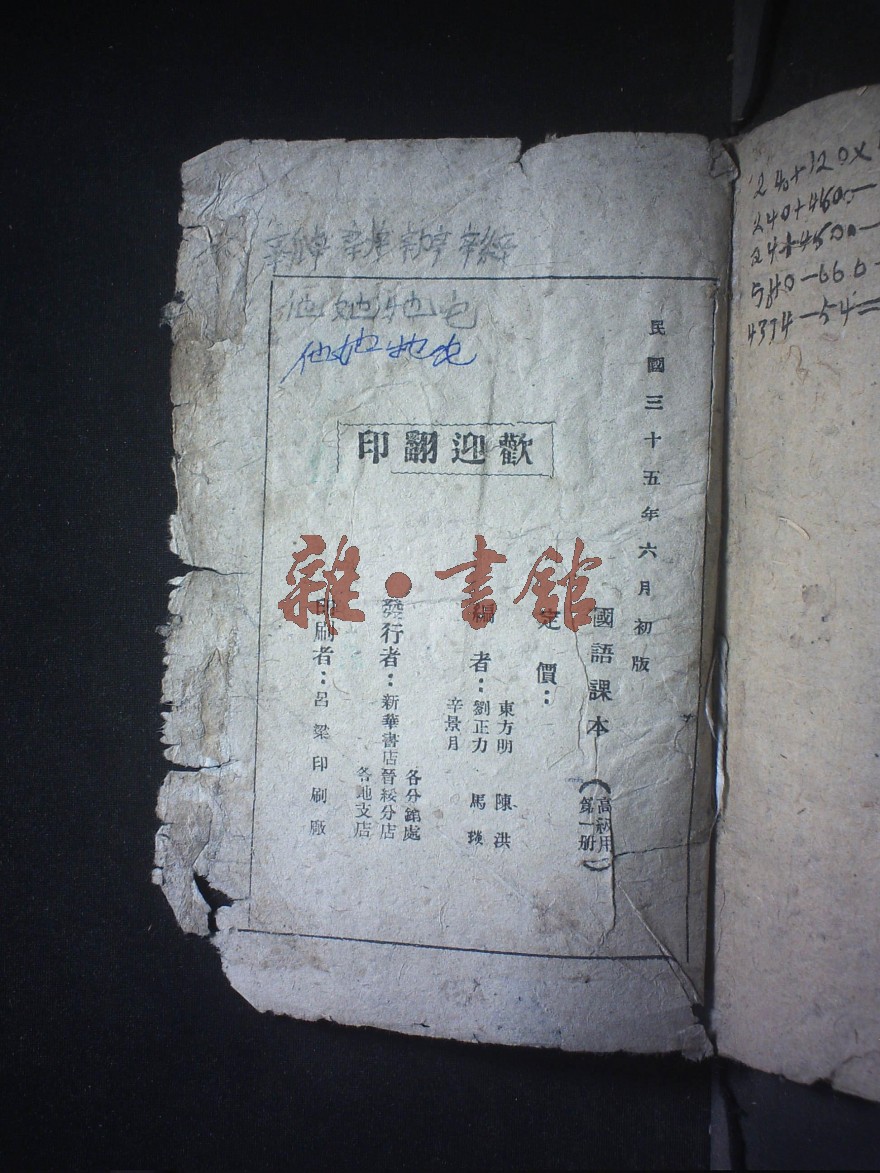 他她牠它
他她牠它
歡迎翻印
民國三十五年六月初版
國語課本（高級用第一册）
定價：
編者：
東方明 陳洪
劉正力 馬琰
辛景月
發行者：新華書店晉綏分店
各分銷處
各地支店
印刷者：呂梁印刷廠
雜·書館
240+4600-
5840-660-
4374-54=